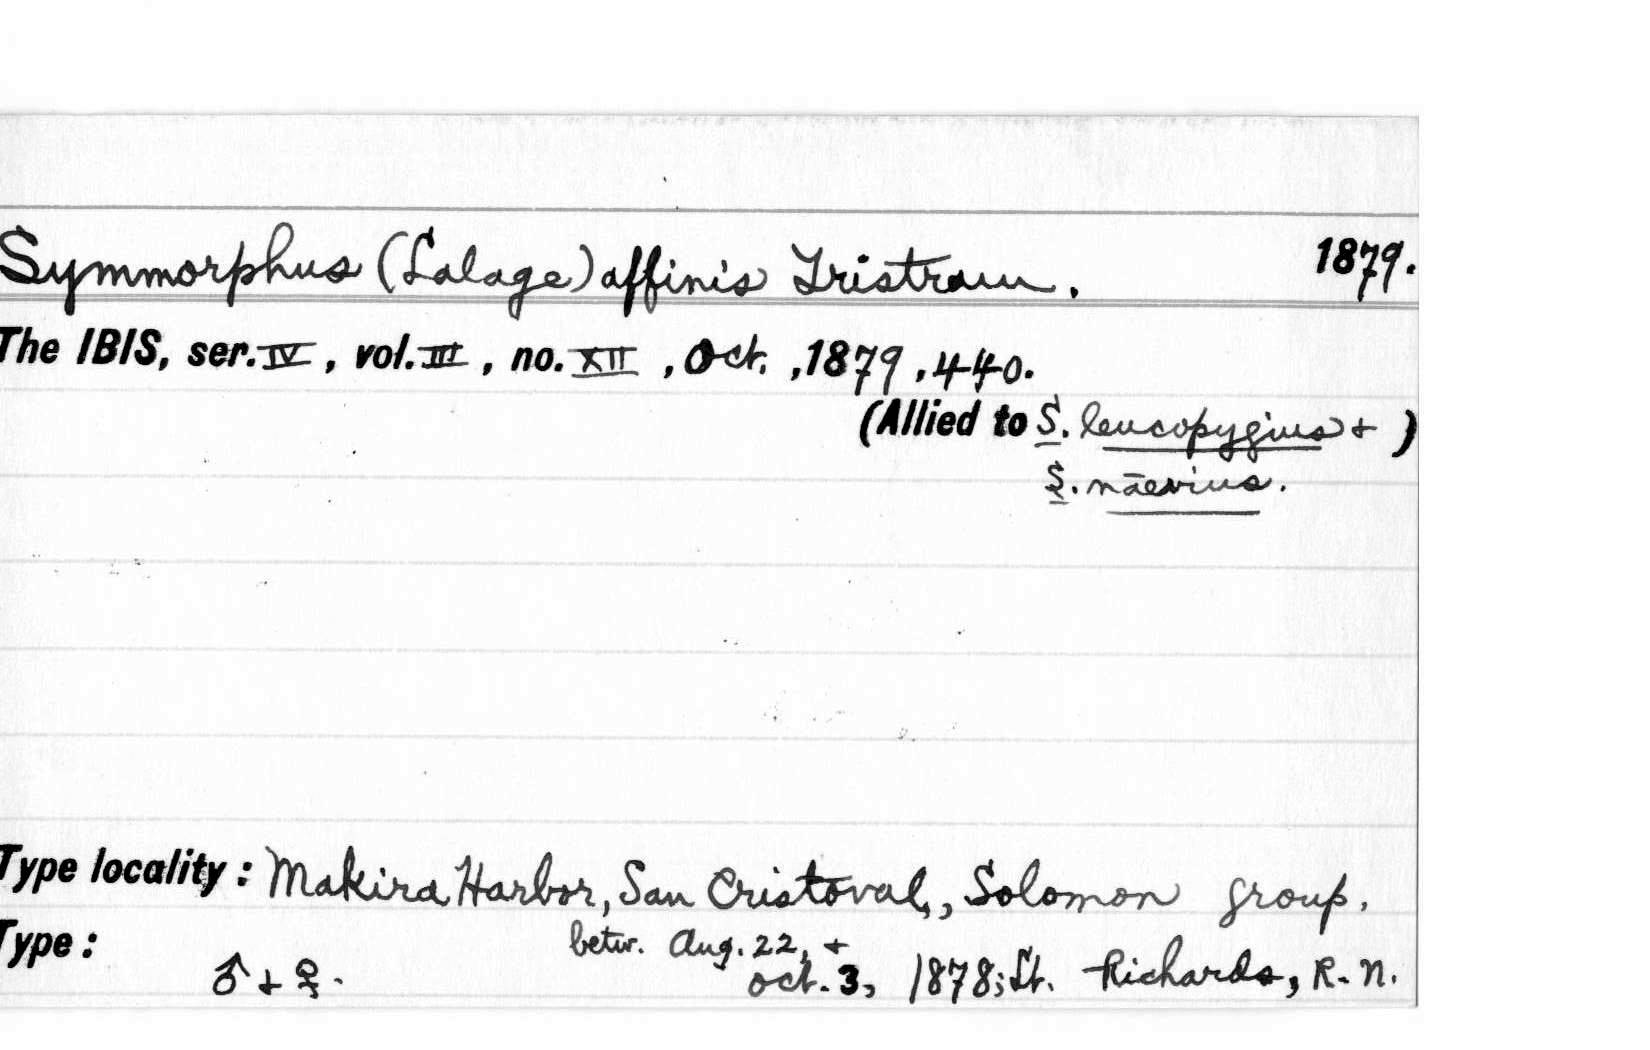 Symmorphus (Lalage) affinis Tristram. 1879.
The IBIS, ser. IV, vol. III, no. XII, Oct., 1879, 440.
(Allied to S. leucopygius + )
S. nāevius.
Type locality: Makira Harbor, San Cristoval, Solomon group.
Type: betw. Aug. 22, +
♂ + ♀. Oct. 3, 1878; Lt. Richards, R. N.